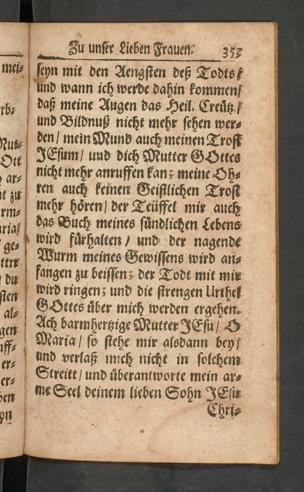 Zu unser Lieben Frauen. 355
seyn mit den Aengsten deß Todts/
und wann ich werde dahin kommen/
daß meine Augen das Heil. Creütz/
und Bildnuß nicht mehr sehen wer-
den/ mein Mund auch meinen Trost
JEsum/ und dich Mutter GOttes
nicht mehr anruffen kan; meine Oh-
ren auch keinen Geistlichen Trost
mehr hören/ der Teüffel mir auch
das Buch meines sündlichen Lebens
wird fürhalten/ und der nagende
Wurm meines Gewissens wird an-
fangen zu beissen; der Todt mit mir
wird ringen; und die strengen Urthel
GOttes über mich werden ergehen.
Ach barmhertzige Mutter JEsu/ O
Maria/ so stehe mir alsdann bey/
und verlaß mich nicht in solchem
Streitt/ und überantworte mein ar-
me Seel deinem lieben Sohn JEsu
Chri-